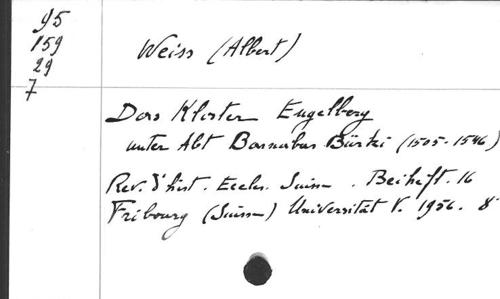 95
159
29
7
Weiss (Albert)
Das Kloster Engelberg
unter Abt Barnabas Bürki (1505-1546)
Rev. d'hist. Eccles. Suisse. Beiheft. 16
Fribourg (Suisse) Universität V. 1956. 8°